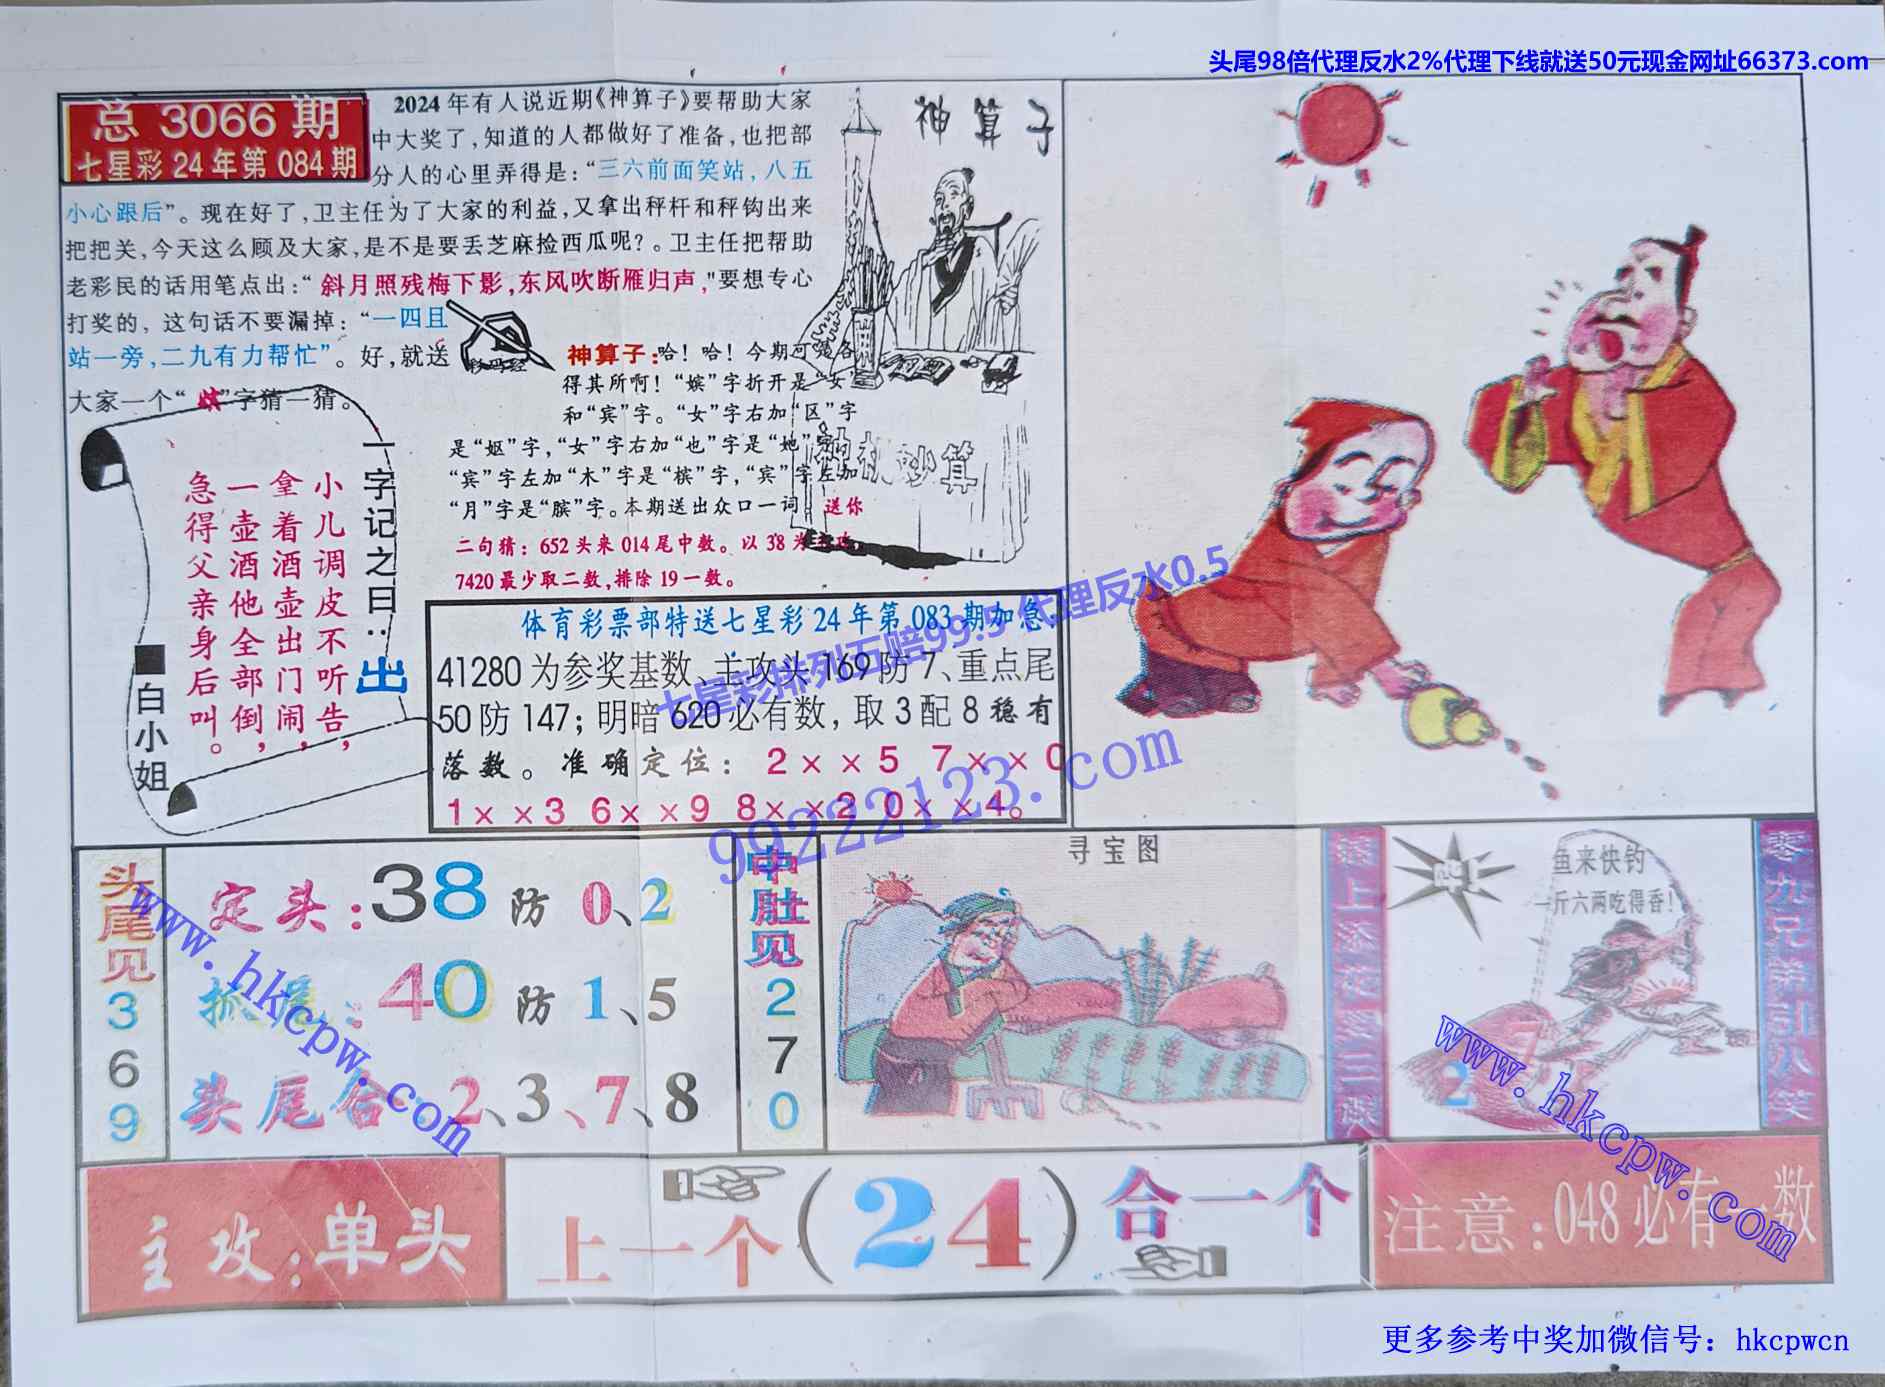 头尾98倍代理反水2%代理下线就送50元现金网址66373.com
总 3066 期
七星彩 24 年第 084 期
2024 年有人说近期《神算子》要帮助大家
中大奖了，知道的人都做好了准备，也把部
分人的心里弄得是：“三六前面笑站，八五
小心跟后”。现在好了，卫主任为了大家的利益，又拿出秤杆和秤钩出来
把把关，今天这么顾及大家，是不是要丢芝麻捡西瓜呢？。卫主任把帮助
老彩民的话用笔点出：“斜月照残梅下影，东风吹断雁归声，"要想专心
打奖的，这句话不要漏掉：“一四且
站一旁，二九有力帮忙”。好，就送
大家一个“嫔”字猜一猜。
彩码经
神算子
神机妙算
神算子：哈！哈！今期可是各
得其所啊！“嫔”字折开是“女”
和“宾”字。“女”字右加“区”字
是“妪”字，“女”字右加“也”字是“她”字
“宾”字左加“木”字是“槟”字，“宾”字左加
“月”字是“膑”字。本期送出众口一词 送你
二句猜：652 头来 014 尾中数。以 38 为主攻，
7420 最少取二数，排除 19 一数。
一字记之曰：出
小儿调皮不听告，
拿着酒壶出门闹，
一壶酒他全部倒，
急得父亲身后叫。
■白小姐
体育彩票部特送七星彩 24 年第 083 期加急
41280 为参奖基数、主攻头 169 防 7、重点尾
50 防 147；明暗 620 必有数，取 3 配 8 稳有
落数。准确定位：2××5 7××0
1××3 6××9 8××2 0××4。
七星彩排列五赔99.5 代理反水0.5
99222123.com
头尾见
3
6
9
定头：38 防 0、2
抓尾：40 防 1、5
头尾合：2、3、7、8
www.hkcpw.com
中肚见
2
7
0
寻宝图
零九兄弟引八笑
鱼来快钓
一斤六两吃得香！
7
2
www.hkcpw.com
主攻：单头
上一个（24）合一个
注意：048 必有一数
更多参考中奖加微信号：hkcpwcn